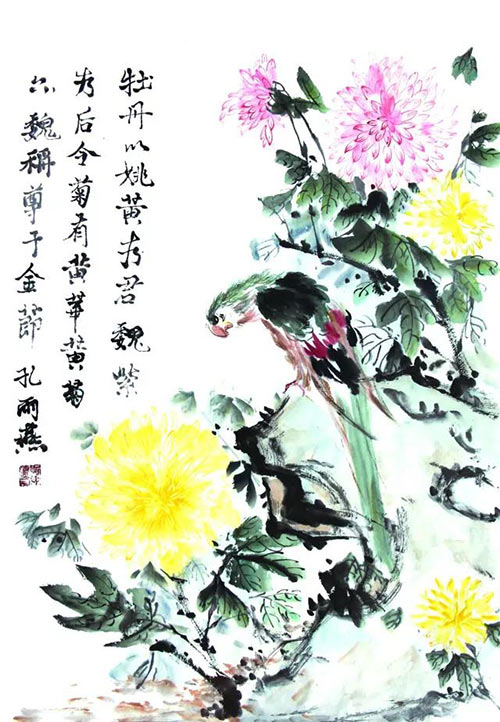 牡丹以姚黄为君魏紫
为后今菊有黄華黄菊
魏稱尊于金節 孔雨燕